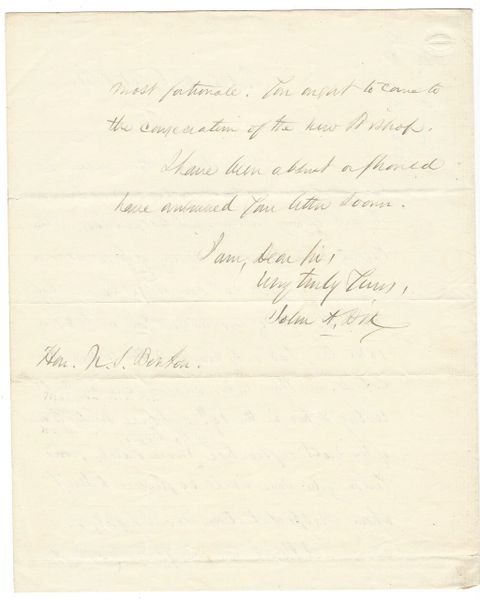 most fortunate. You ought to come to
the consecration of the new Bishop.
I have been absent or should
have answered your letter sooner.
I am, Dear Sir,
very truly Yours,
John A. Dix
Hon. N. S. Benton.